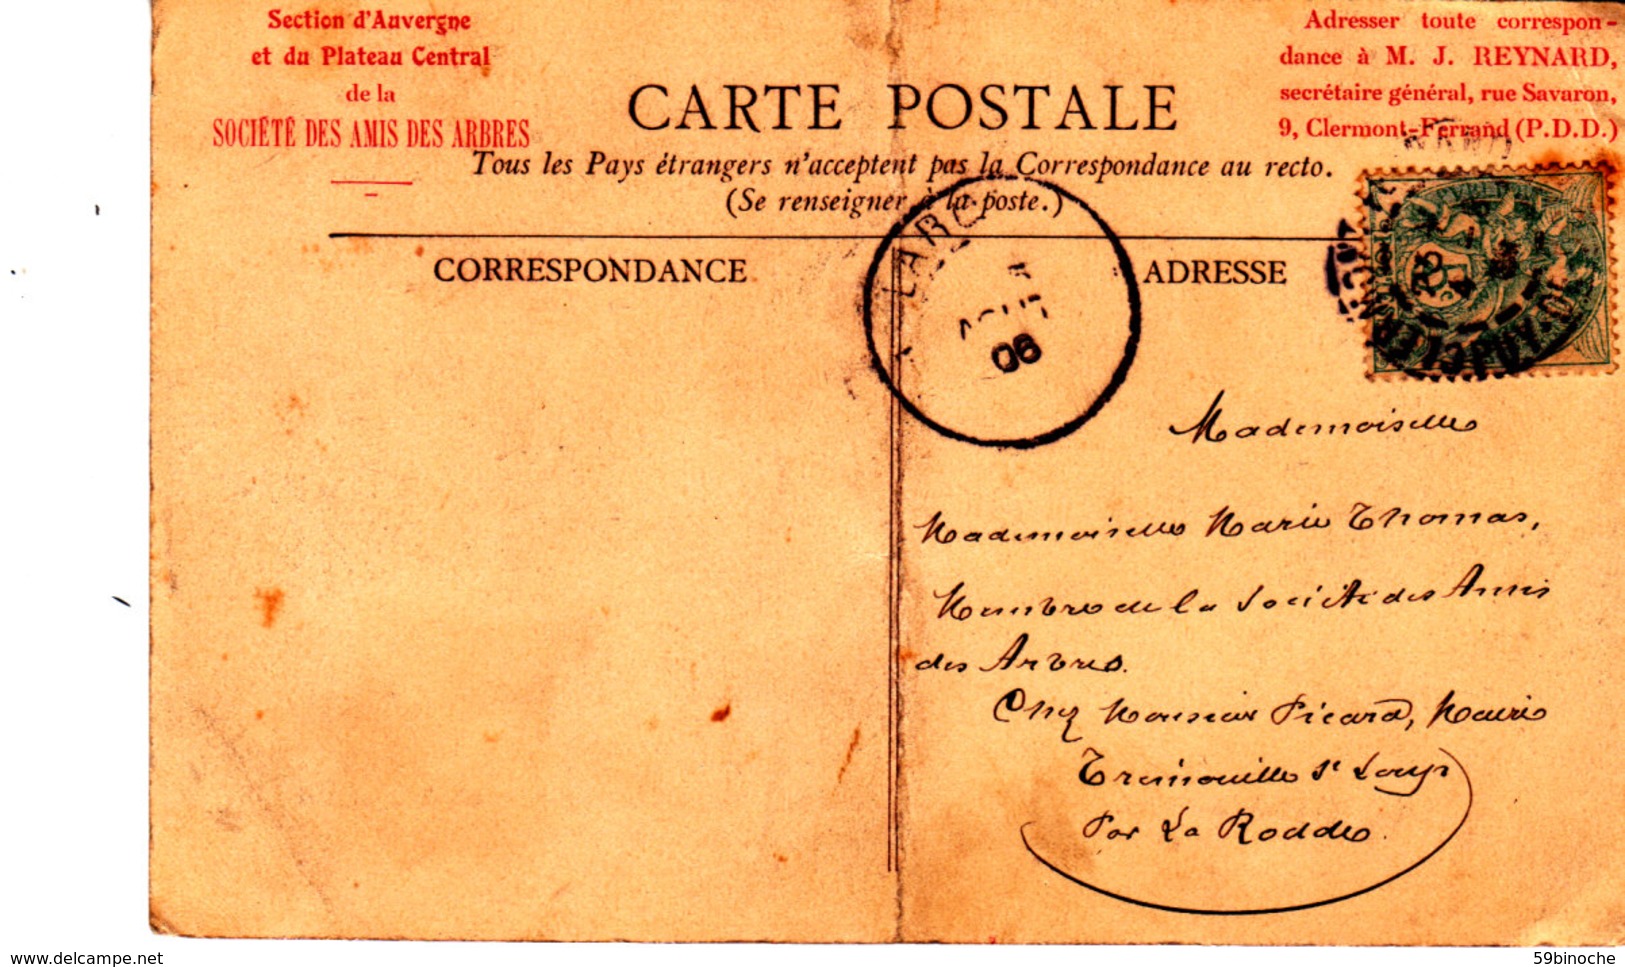 Section d'Auvergne
et du Plateau Central
de la
SOCIÉTÉ DES AMIS DES ARBRES
Adresser toute correspon-
dance à M. J. REYNARD,
secrétaire général, rue Savaron,
9, Clermont-Ferrand (P.D.D.)
CARTE POSTALE
Tous les Pays étrangers n'acceptent pas la Correspondance au recto.
(Se renseigner à la poste.)
CORRESPONDANCE
ADRESSE
AOUT
06
Mademoiselle
Mademoiselle Marie Thomas,
Membre de la Société des Amis
des Arbres.
Chez Monsieur Picard, Mairie
Tremouille St Loup
Par La Rodde.
delcampe.net
59binoche